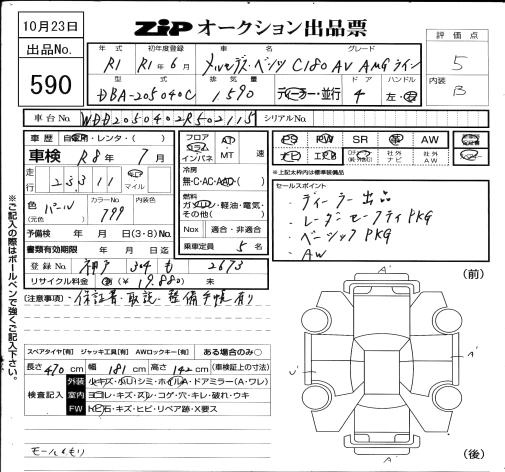 10月23日
ZIP オークション出品票
出品No.
590
評価点
5
内装
B
年式 初年度登録 車名 グレード
R1 R1年6月 メルセデス・ベンツ C180 AV AMGライン
型式 排気量 ドア ハンドル
DBA-205040C 1590 ディーラー・並行 4 左・右
車台No. WDD2050402R502115 シリアルNo.
車歴 自家用・レンタ・( )
車検 R8年 7月
走行 23311 マイル
色 (元色) パール カラーNo. 799 内装色
予備検 年 月 日(3・8)No.
書類有効期限 年 月 日迄
登録No. 神戸 304 も 2673
リサイクル料金 (¥ 19,880)
フロア コラム インパネ AT MT 速
冷房 無・C・AC・AAC・( )
燃料 ガソリン・軽油・電気・その他( )
Nox 適合・非適合
乗車定員 5 名
PS PW SR AW
ナビ エアB 社外ナビ 社外AW
※上記太枠内は標準装備品
セールスポイント
・ディーラー出品
・レーダーセーフティPKG
・ベーシックPKG
・AW
(注意事項)・保証書・取説・整備手帳有り
※ご記入の際はボールペンで強くご記入下さい。
スペアタイヤ[有] ジャッキ工具[有] AWロックキー[有] ある場合のみ○
長さ 470 cm 幅 181 cm 高さ 142 cm (車検証上の寸法)
検査記入
外装 小キズ・小凹・シミ・ホイルA・ドアミラー(A・ワレ)
室内 ヨゴレ・キズ・スレ・コゲ・穴・キレ・破れ・ウキ
FW トビ石・キズ・ヒビ・リペア跡・X要ス
モールくもり
(前)
A'
A'
A'
(後)